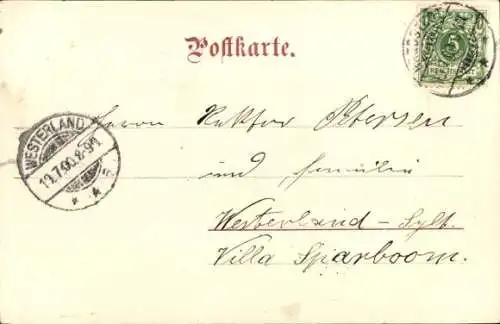 Postkarte.
5
WESTERLAND
19.7.00.8-9V
* *
Herrn Rektor Petersen
und Familie
Westerland - Sylt.
Villa Sparboom.